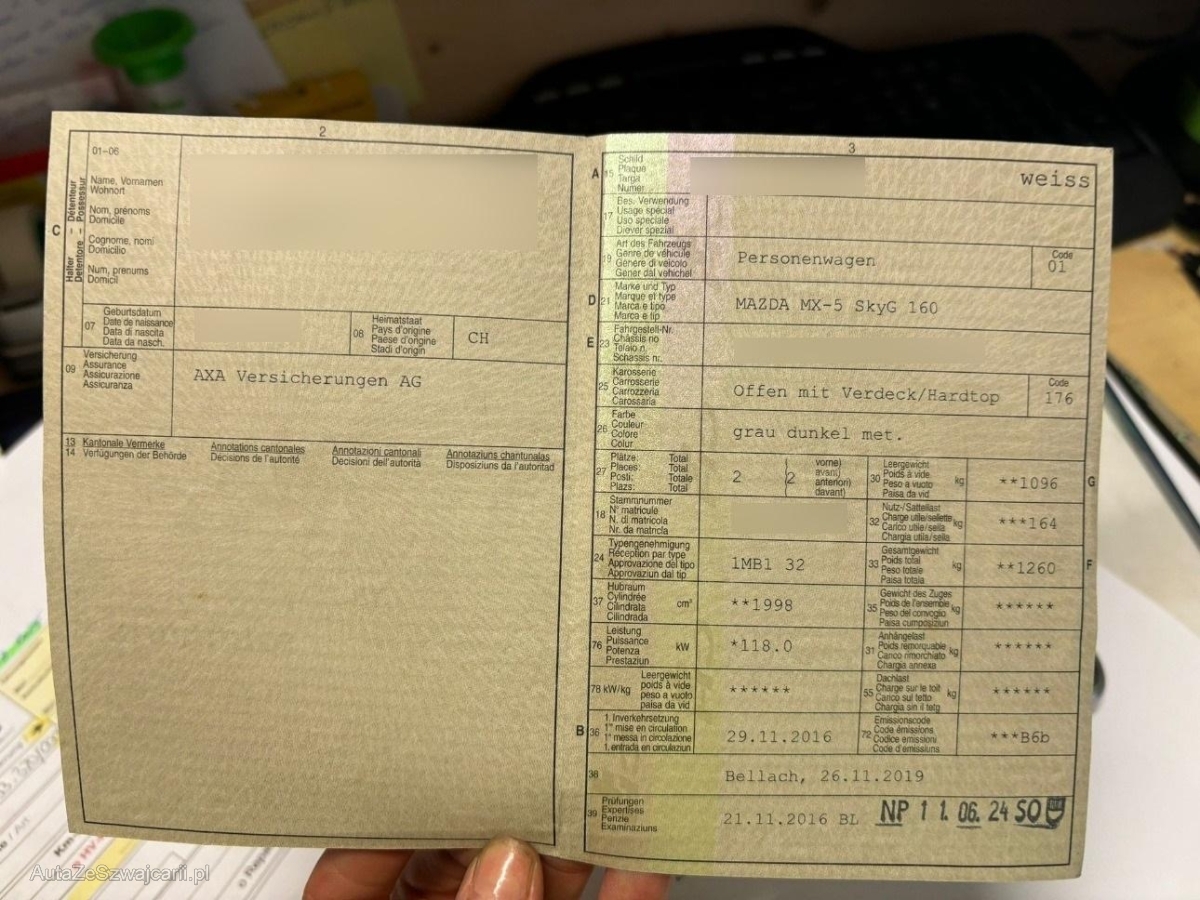 2
01-06
C
Halter - Détenteur
Detentore - Possessur
Name, Vornamen
Wohnort
Nom, prénoms
Domicile
Cognome, nomi
Domicilio
Num, prenums
Domicil
07
Geburtsdatum
Date de naissance
Data di nascita
Data da nasch.
08
Heimatstaat
Pays d'origine
Paese d'origine
Stadi d'origin
CH
09
Versicherung
Assurance
Assicurazione
Assicuranza
AXA Versicherungen AG
13 Kantonale Vermerke
14 Verfügungen der Behörde
Annotations cantonales
Décisions de l'autorité
Annotazioni cantonali
Decisioni dell'autorità
Annotaziuns chantunalas
Disposiziuns da l'autoritad
3
A
15
Schild
Plaque
Targa
Numer
weiss
17
Bes. Verwendung
Usage spécial
Uso speciale
Diever spezial
19
Art des Fahrzeugs
Genre de véhicule
Genere di veicolo
Gener dal vehichel
Personenwagen
Code
01
D
21
Marke und Typ
Marque et type
Marca e tipo
Marca e tip
MAZDA MX-5 SkyG 160
E
23
Fahrgestell-Nr.
Châssis no
Telaio n.
Schassis nr.
25
Karosserie
Carrosserie
Carrozzeria
Carossaria
Offen mit Verdeck/Hardtop
Code
176
26
Farbe
Couleur
Colore
Colur
grau dunkel met.
27
Plätze: Total
Places: Total
Posti: Totale
Plazs: Total
2
(2
vorne)
avant)
anteriori)
davant)
30
Leergewicht
Poids à vide
Peso a vuoto
Paisa da vid
kg
**1096
G
18
Stammnummer
N° matricule
N. di matricola
Nr. da matricla
32
Nutz-/Sattellast
Charge utile/sellette
Carico utile/sella
Chargia utila/sella
kg
***164
24
Typengenehmigung
Réception par type
Approvazione del tipo
Approvaziun dal tip
1MB1 32
33
Gesamtgewicht
Poids total
Peso totale
Paisa totala
kg
**1260
F
37
Hubraum
Cylindrée
Cilindrata
Cilindrada
cm³
**1998
35
Gewicht des Zuges
Poids de l'ensemble
Peso del convoglio
Paisa cumposiziun
kg
******
76
Leistung
Puissance
Potenza
Prestaziun
kW
*118.0
31
Anhängelast
Poids remorquable
Carico rimorchiato
Chargia annexa
kg
******
78 kW/kg
Leergewicht
poids à vide
peso a vuoto
paisa da vid
******
55
Dachlast
Charge sur le toit
Carico sul tetto
Chargia sin il tetg
kg
******
B
36
1. Inverkehrsetzung
1re mise en circulation
1a messa in circolazione
1. entrada en circulaziun
29.11.2016
72
Emissionscode
Code émissions
Codice emissioni
Code d'emissiuns
***B6b
38
Bellach, 26.11.2019
39
Prüfungen
Expertises
Perizie
Examinaziuns
21.11.2016 BL
NP 11.06.24 SO
AutaZeSzwajcarii.pl